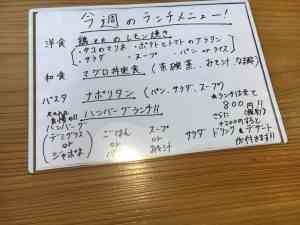 今週のランチメニュー!
洋食 鶏ももの レモン焼き
・タコのマリネ ・ポテトとトマトのグラタン
・サラダ ・スープ ・パン or ライス
和食 マグロ丼定食 (茶碗蒸、みそ汁
パスタ ナポリタン (パン、サラダ、スープ)
ハンバーグランチ!!
★ランチは全て
800円!!
ハンバーグ
(デミグラス
or
ジャポネ)
ごはん
or
パン
スープ
or
みそ汁
サラダ
さらに
+200円すると
ドリンク デザート
が付きます!!